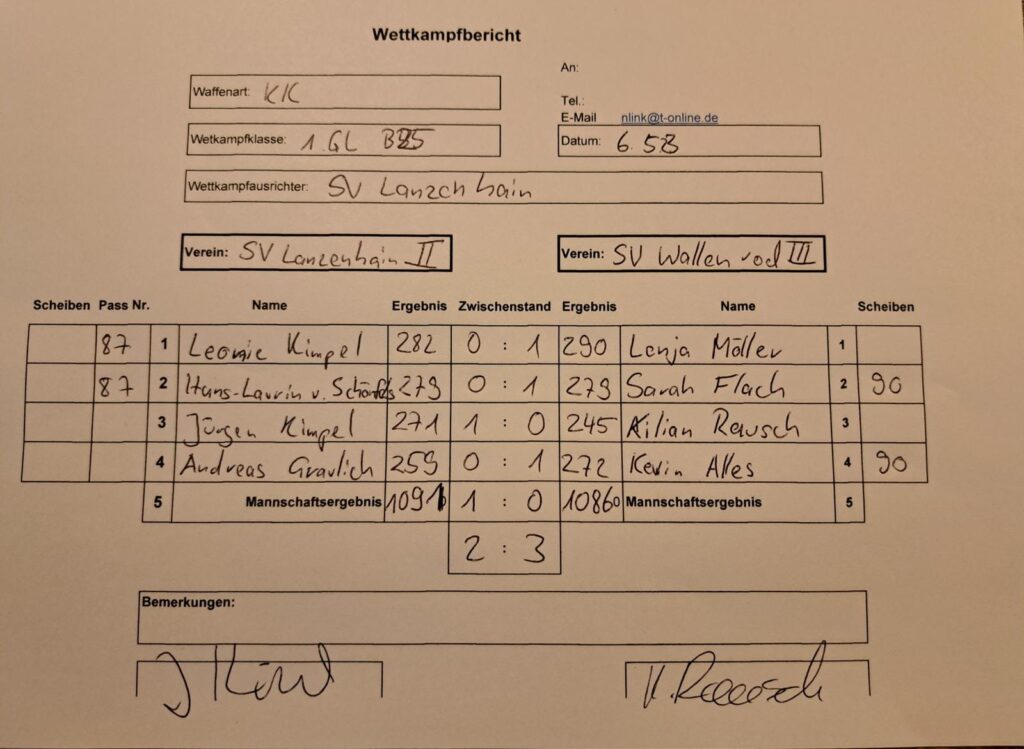 Wettkampfbericht
An:
Waffenart: KK
Tel.:
E-Mail nlink@t-online.de
Wetkampfklasse: 1.GL
Datum: 6.
Wettkampfausrichter: SV Lanzenhain
Verein: SV Lanzenhain II Verein: SV Wallenrod III
Scheiben Pass Nr. Name Ergebnis Zwischenstand Ergebnis Name Scheiben
87 1 Leonie Kimpel 282 0 : 1 290 Lenja Möller 1
87 2 Hans-Laurin v. 279 0 : 1 279 Sarah Flach 2 90
3 Jürgen Kimpel 271 1 : 0 245 Kilian Rausch 3
4 Andreas Graulich 259 0 : 1 272 Kevin Alles 4 90
5 Mannschaftsergebnis 1091 1 : 0 1086 0 Mannschaftsergebnis 5
2 : 3
Bemerkungen:
K. Rausch